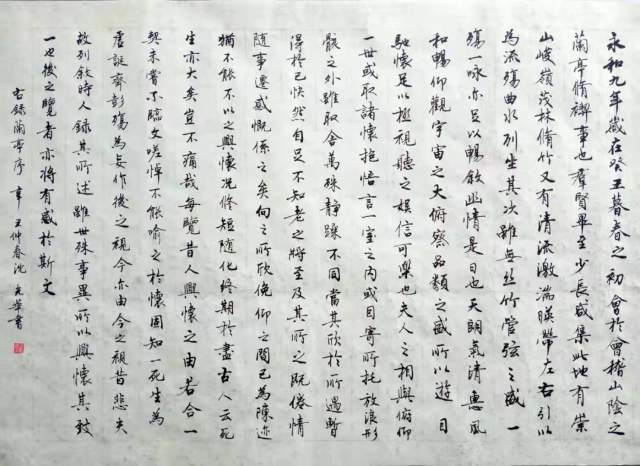 永和九年歲在癸丑暮春之初會於會稽山陰之
蘭亭脩禊事也羣賢畢至少長咸集此地有崇
山峻嶺茂林脩竹又有清流激湍暎帶左右引以
為流觴曲水列坐其次雖無絲竹管弦之盛一
觴一詠亦足以暢敘幽情是日也天朗氣清惠風
和暢仰觀宇宙之大俯察品類之盛所以遊目
騁懷足以極視聽之娛信可樂也夫人之相與俯仰
一世或取諸懷抱悟言一室之內或因寄所托放浪形
骸之外雖取舍萬殊靜躁不同當其欣於所遇暫
得於己快然自足不知老之將至及其所之既倦情
隨事遷感慨係之矣向之所欣俛仰之間已為陳迹
猶不能不以之興懷況修短隨化終期於盡古人云死
生亦大矣豈不痛哉每覽昔人興懷之由若合一
契未嘗不臨文嗟悼不能喻之於懷固知一死生為
虛誕齊彭殤為妄作後之視今亦由今之視昔悲夫
故列敘時人錄其所述雖世殊事異所以興懷其致
一也後之覽者亦將有感於斯文
右錄蘭亭序 辛丑仲春沈華書